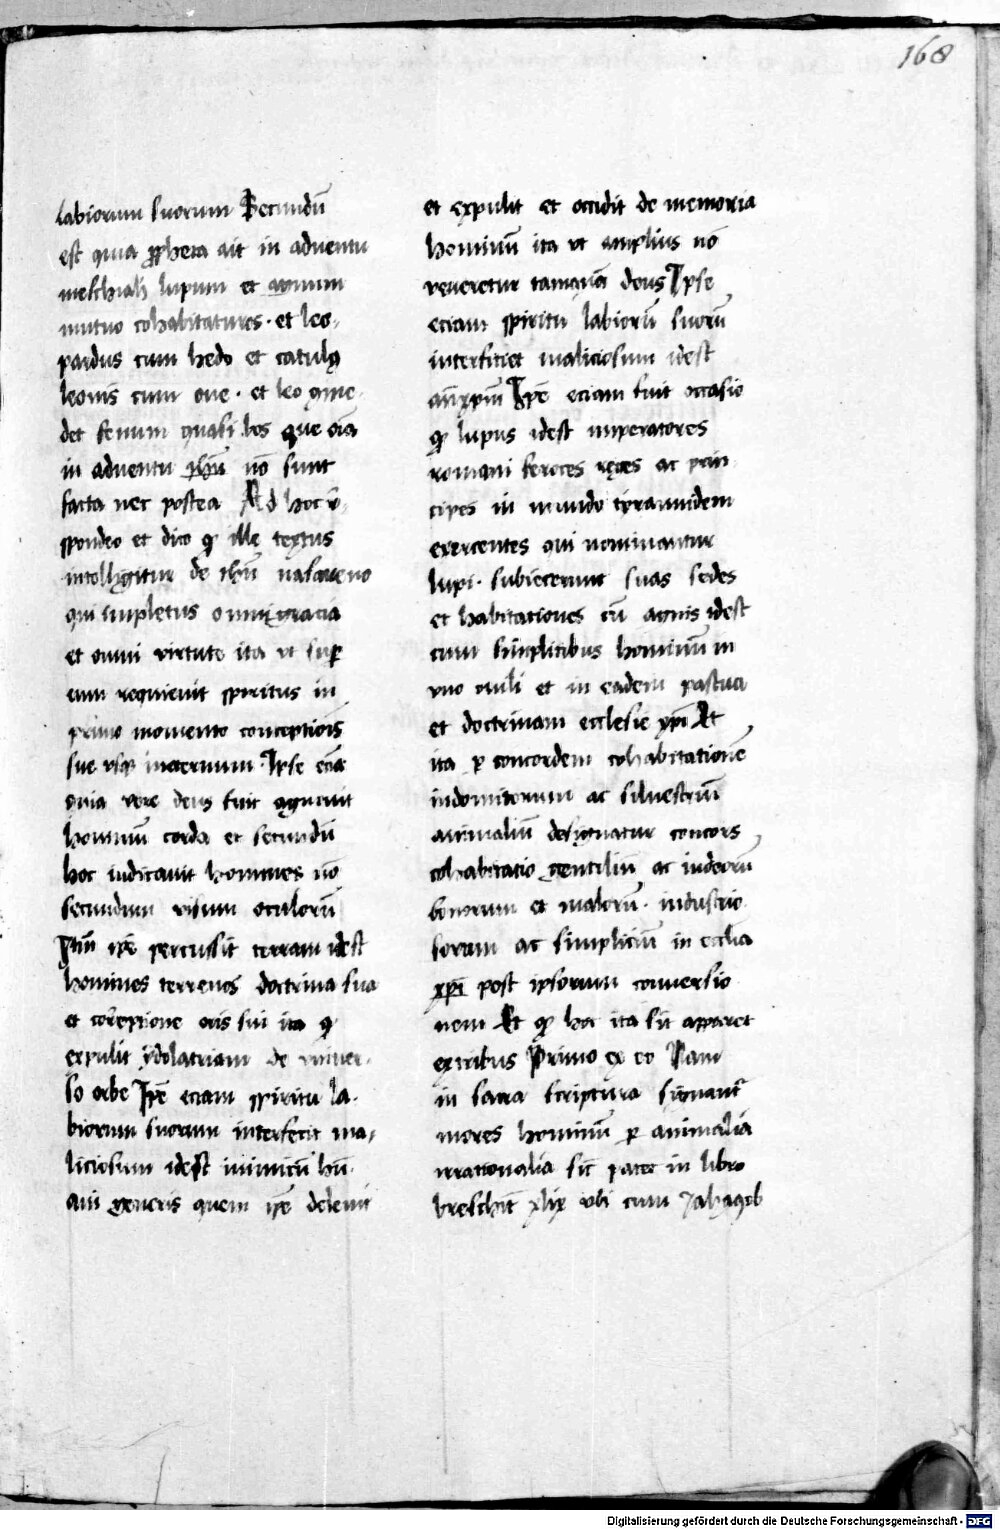 168
labiorum suorum Secundū
est quia ꝓpheta ait in aduentu
meschiah lupum et agnum
mutuo cohabitatures · et leo-
pardus cum hedo et catulꝰ
leonis cum oue · et leo ꝯme-
det fenum quasi bos que oīa
in aduentu ihū nō sunt
facta nec postea Ad hoc r̄-
spondeo et dico qꝫ ille textus
intelligitur de ihū nasareno
qui impletus omni gracia
et omni virtute ita vt suꝑ
eum requieuit spiritus in
primo momento conceptiōis
sue vsqꝫ ineternum · Ipse ecīa
quia vere deus fuit agnouit
hominū corda et secundū
hoc iudicauit homines nō
secundum visum oculorū
Itm̄ ip̄e percussit terram idest
homines terrenos doctrina sua
et corͬeptione oris sui ita qꝫ
expulit ydolatriam de vniuer-
so orbe Ip̄e eciam spiritu la-
biorum suorum interfecit ma-
liciosum idest inimicū hū-
ani generis quem ip̄e deleuit
et expulit et occidit de memoria
hominū ita vt amplius nō
reueretur tamquā deus Ipse
eciam spiritu labiorū suorū
interficiet maliciosum idest
an̄xpm̄ Ip̄e eciam fuit occasio
qꝫ lupus idest imperatores
romani feroces reges ac prin-
cipes in mundo tyrannidem
exercentes qui nominantur
lupi · subiecerunt suas sedes
et habitationes cū agnis idest
cum simplicibus hominū in
vno ouili et in eadem pastura
et doctrinam ecclesie xp̄i Et
ita ꝑ concordem cohabitationē
indomitorum ac siluestriū
animaliū designatur concors
cohabitatio gentiliū ac iudeorū
bonorum et malorū · industrio-
sorum ac simpliciū in ecclīa
xp̄i post ipsorum conuersio
nem Et qꝫ hoc ita sit apparet
ex tribus Primo ex eo Nam
in sacra scriptura signantͬ
mores hominū ꝑ animalia
irrationalia sic̄ patet in libro
breschit̄ xlix vbi cum Jahaqob
Digitalisierung gefördert durch die Deutsche Forschungsgemeinschaft - DFG